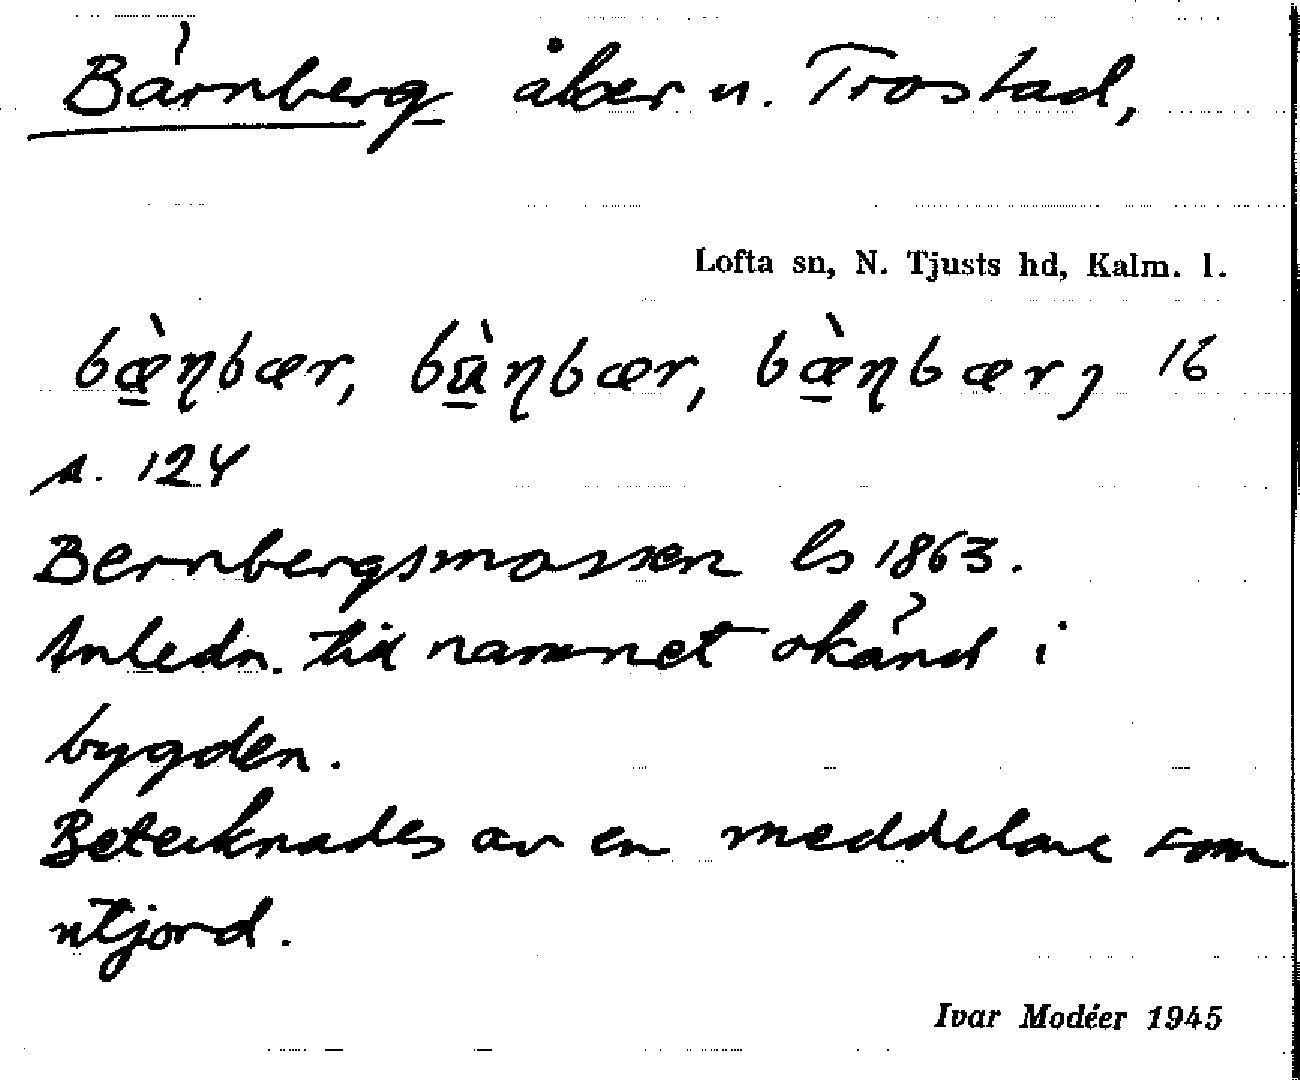 Bärnberg åker u. Trostad,
Lofta sn, N. Tjusts hd, Kalm. l.
bæ̀ŋbær, bùŋbær, bæ̀ŋbærȷ 16
s. 124
Bernbergsmossen ls 1863.
Anledn. till namnet okänd i
bygden.
Betecknades av en meddelare som
utjord.
Ivar Modéer 1945